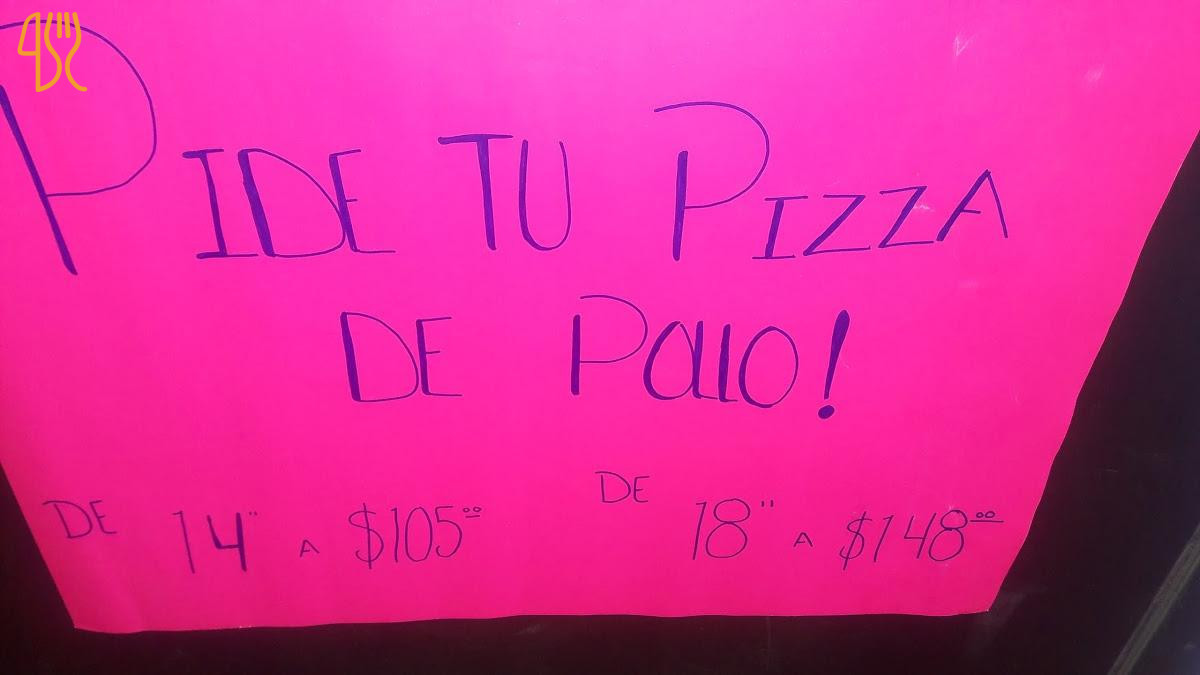 PIDE TU PIZZA
DE Pollo!
DE 14" A $105⁰⁰
DE 18" A $148⁰⁰